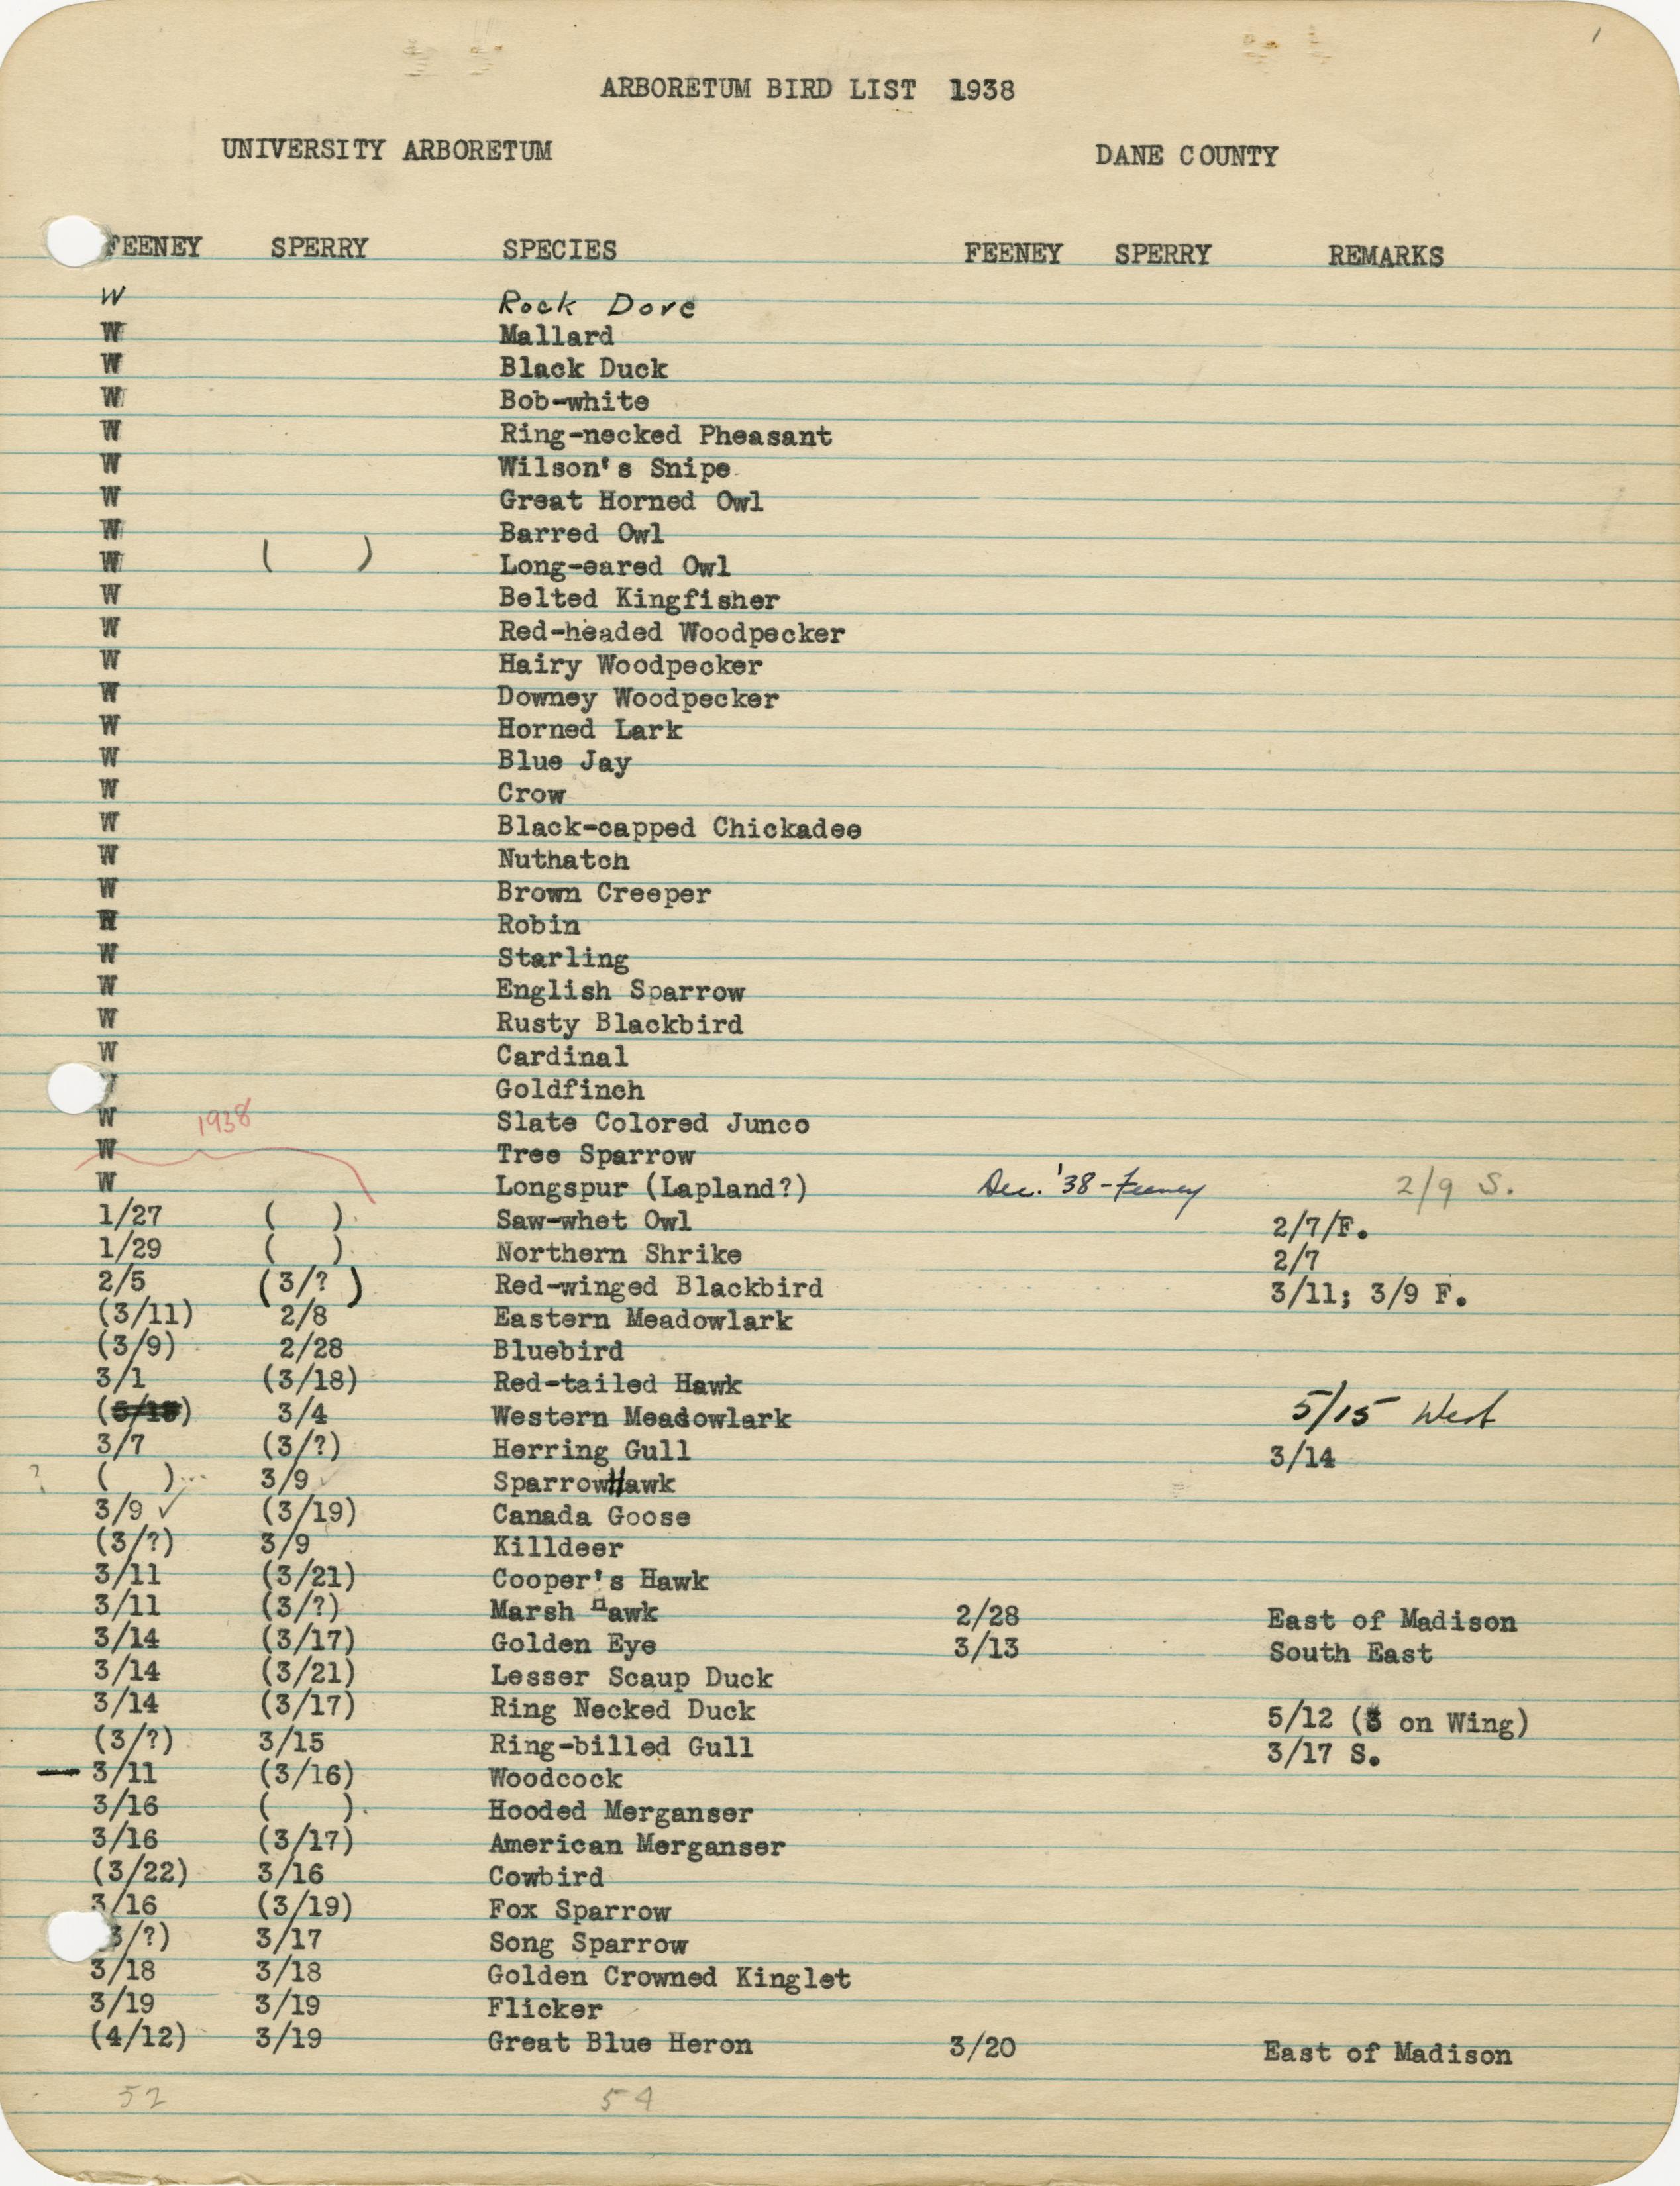 1
ARBORETUM BIRD LIST 1938
UNIVERSITY ARBORETUM DANE COUNTY
FEENEY SPERRY SPECIES FEENEY SPERRY REMARKS
W Rock Dove
W Mallard
W Black Duck
W Bob-white
W Ring-necked Pheasant
W Wilson's Snipe
W Great Horned Owl
W Barred Owl
W ( ) Long-eared Owl
W Belted Kingfisher
W Red-headed Woodpecker
W Hairy Woodpecker
W Downey Woodpecker
W Horned Lark
W Blue Jay
W Crow
W Black-capped Chickadee
W Nuthatch
W Brown Creeper
W Robin
W Starling
W English Sparrow
W Rusty Blackbird
W Cardinal
Goldfinch
W 1938 Slate Colored Junco
W Tree Sparrow
W Longspur (Lapland?) Dec. '38 - Feeney 2/9 S.
1/27 ( ) Saw-whet Owl 2/7/F.
1/29 ( ) Northern Shrike 2/7
2/5 (3/? ) Red-winged Blackbird 3/11; 3/9 F.
(3/11) 2/8 Eastern Meadowlark
(3/9) 2/28 Bluebird
3/1 (3/18) Red-tailed Hawk
(5/15) 3/4 Western Meadowlark 5/15 West
3/7 (3/?) Herring Gull 3/14
? ( )... 3/9 ✓ SparrowHawk
3/9 ✓ (3/19) Canada Goose
(3/?) 3/9 Killdeer
3/11 (3/21) Cooper's Hawk
3/11 (3/?) Marsh Hawk 2/28 East of Madison
3/14 (3/17) Golden Eye 3/13 South East
3/14 (3/21) Lesser Scaup Duck
3/14 (3/17) Ring Necked Duck 5/12 (3 on Wing)
(3/?) 3/15 Ring-billed Gull 3/17 S.
— 3/11 (3/16) Woodcock
3/16 ( ) Hooded Merganser
3/16 (3/17) American Merganser
(3/22) 3/16 Cowbird
3/16 (3/19) Fox Sparrow
3/?) 3/17 Song Sparrow
3/18 3/18 Golden Crowned Kinglet
3/19 3/19 Flicker
(4/12) 3/19 Great Blue Heron 3/20 East of Madison
52 54